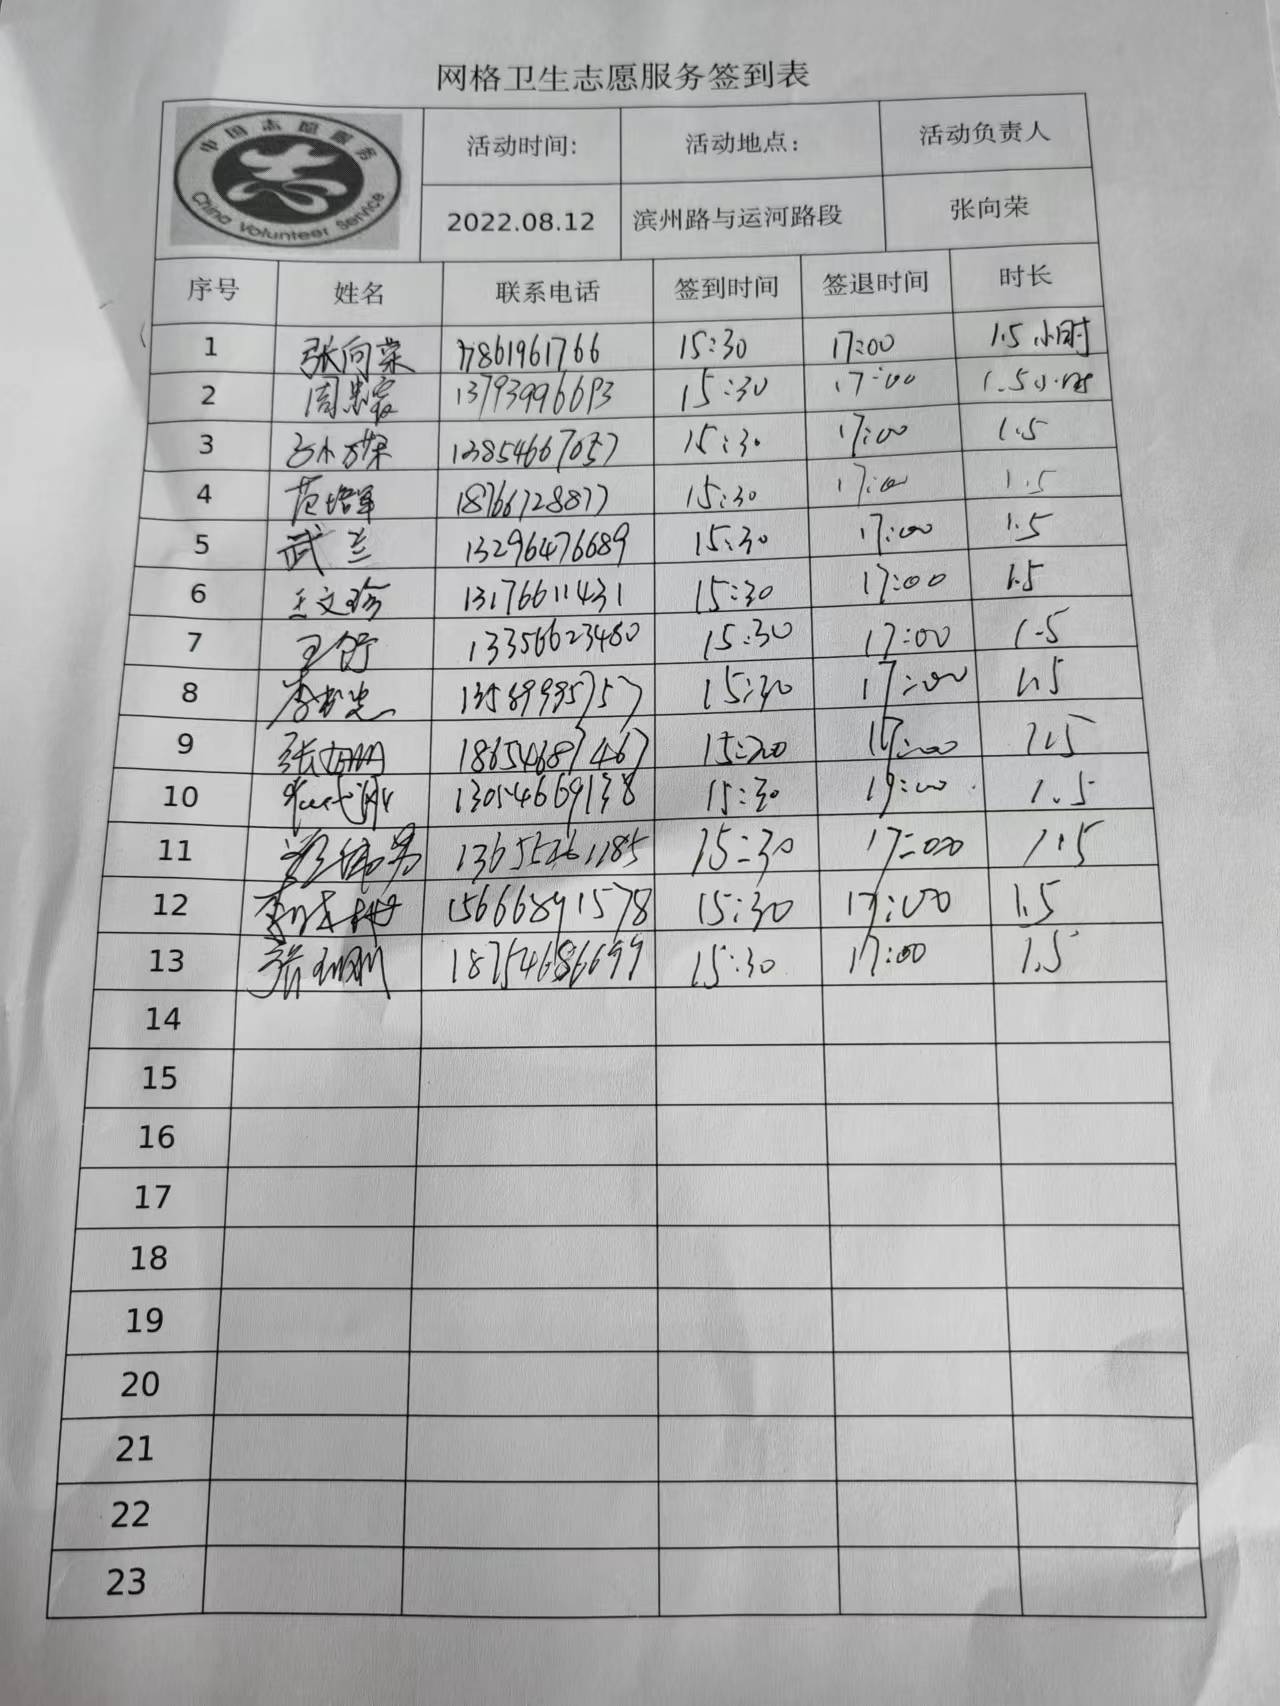 网格卫生志愿服务签到表
中国志愿服务
China Volunteer Service
活动时间: 活动地点: 活动负责人
2022.08.12 滨州路与运河路段 张向荣
序号 姓名 联系电话 签到时间 签退时间 时长
1 张向荣 17861961766 15:30 17:00 1.5小时
2 周惠 13793996693 15:30 17:00 1.5小时
3 13854667057 15:30 17:00 1.5
4 范培军 18766728877 15:30 17:00 1.5
5 武兰 13296476689 15:30 17:00 1.5
6 王文珍 13176611431 15:30 17:00 1.5
7 王舒 13356623480 15:30 17:00 1.5
8 李 13589995757 15:30 17:00 1.5
9 张 18654687467 17:00 1.5
10 13054669138 15:30 1.5
11 15:30 17:00 1.5
12 李 15666891578 15:30 17:00 1.5
13 张 18754686699 15:30 17:00 1.5
14
15
16
17
18
19
20
21
22
23